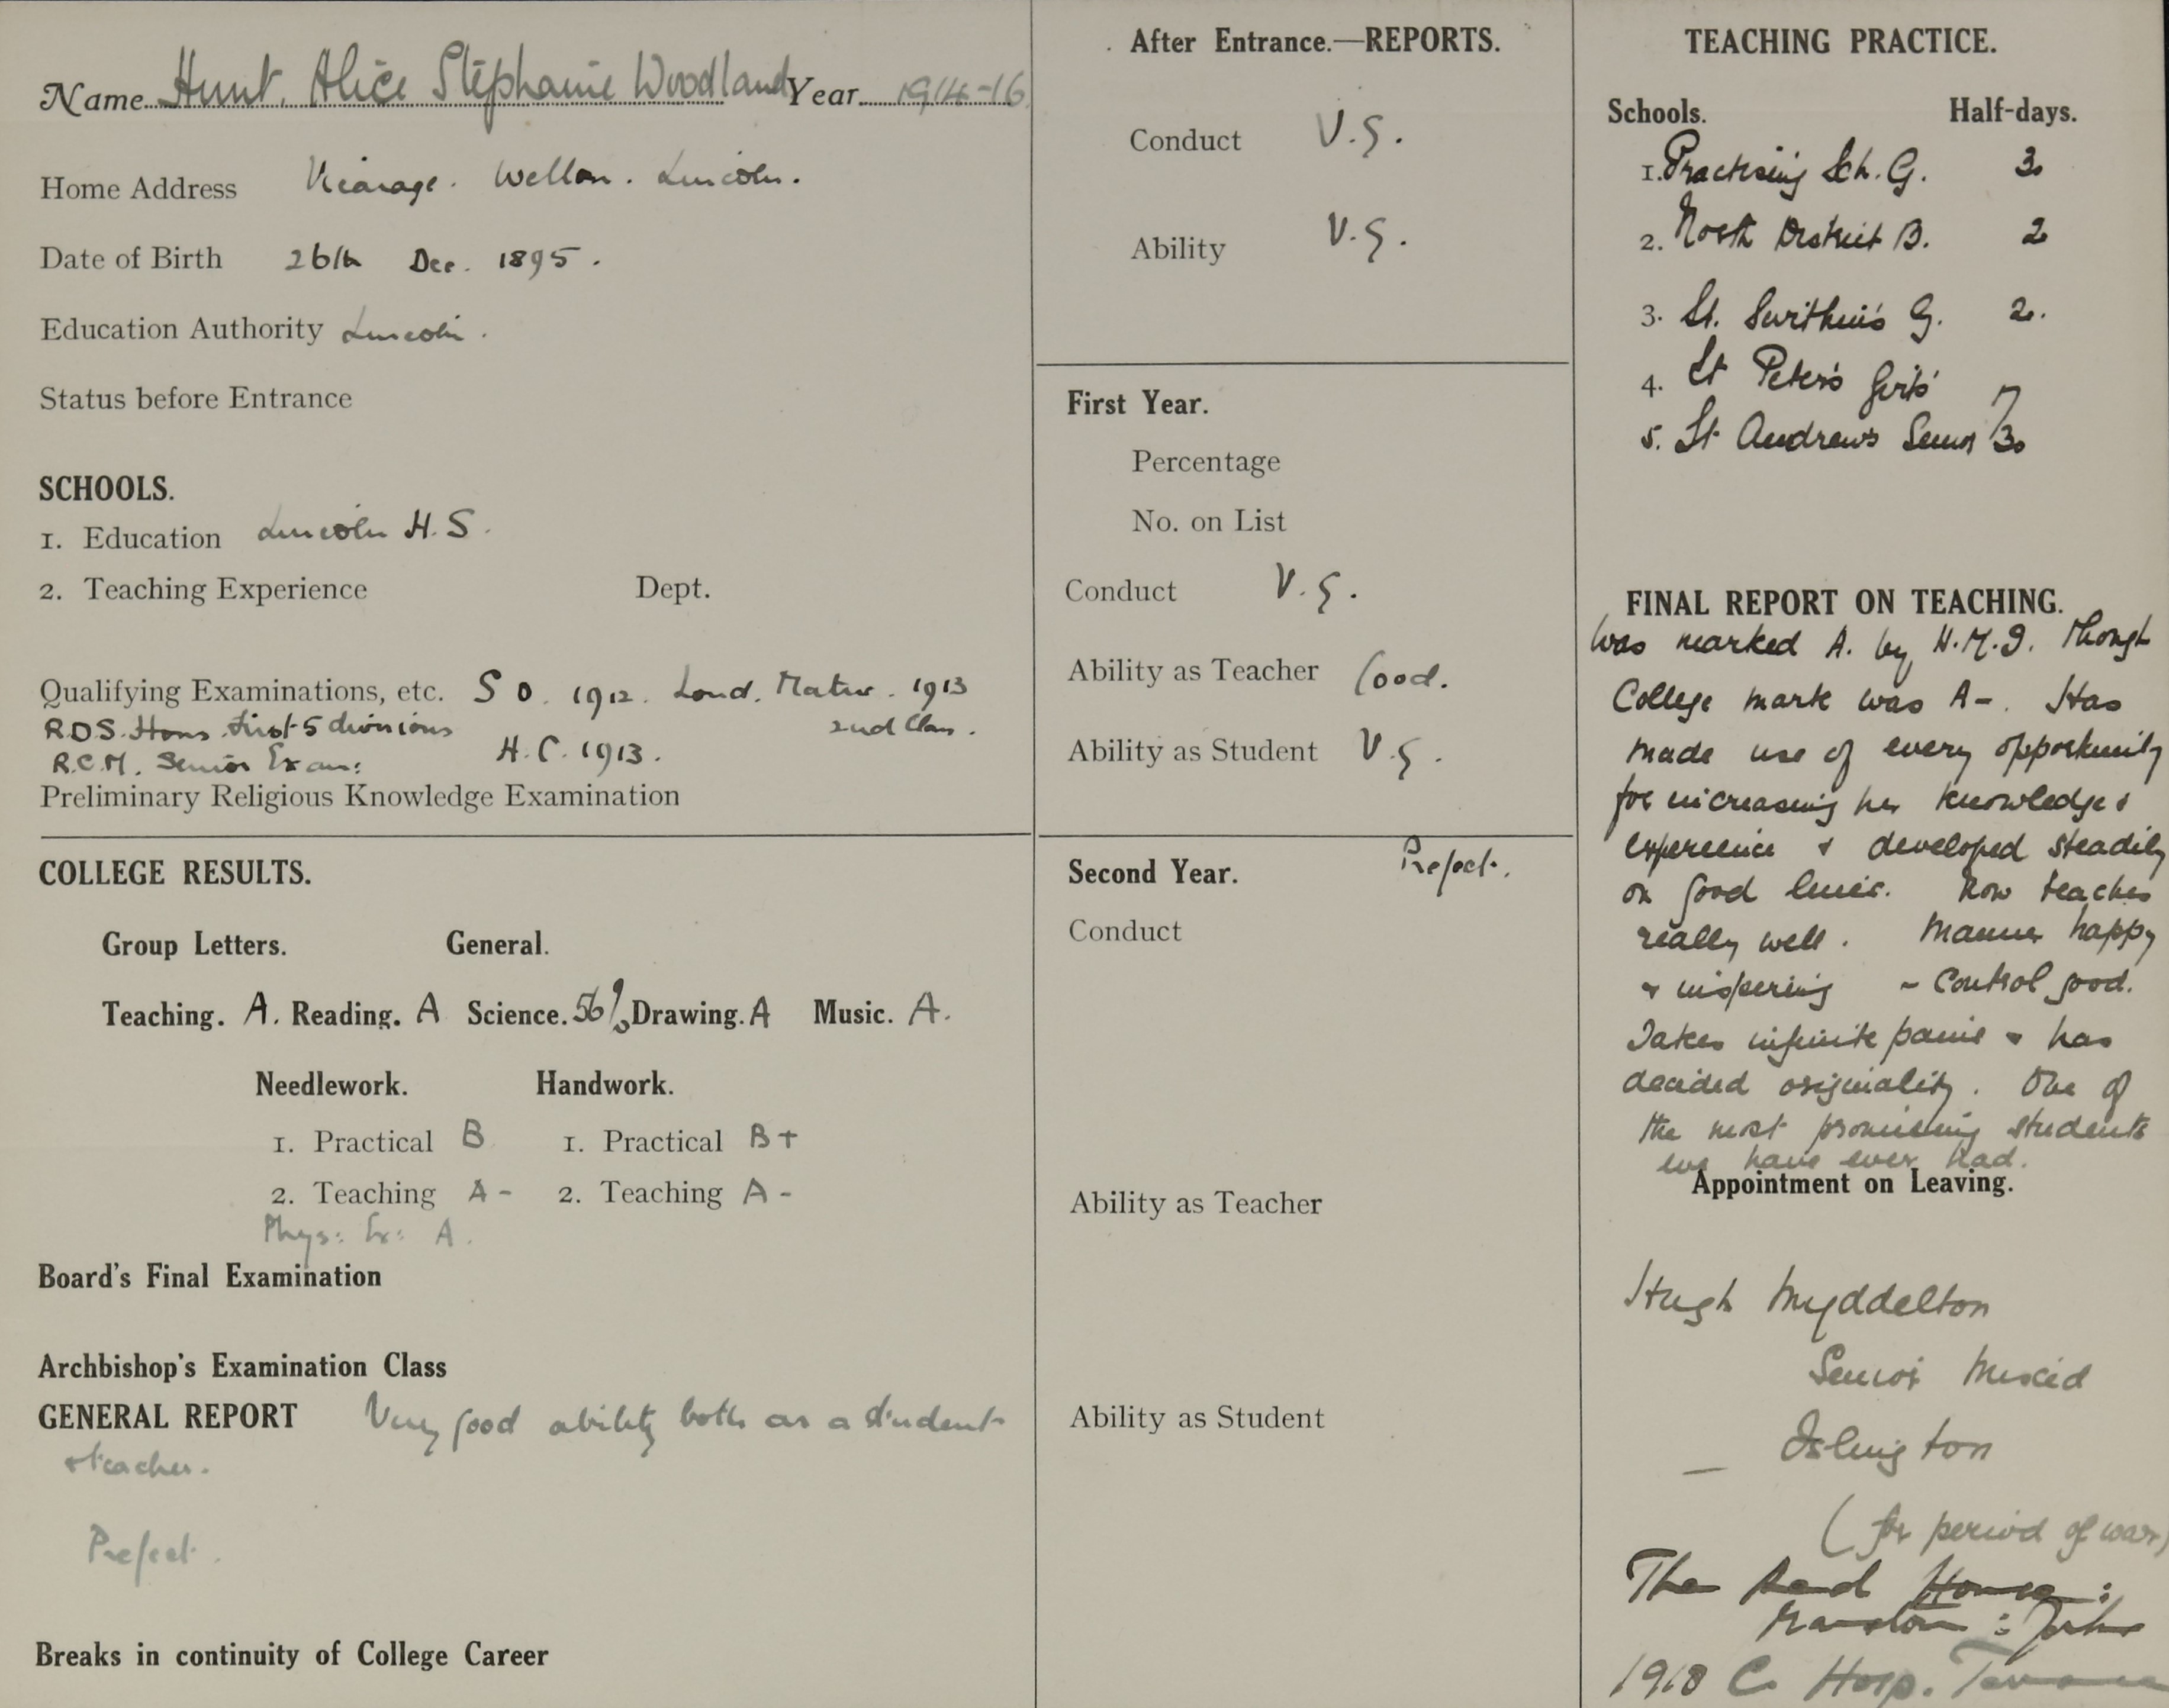 Name Hunt. Alice Stephanie Woodland Year 1914-16
Home Address Vicarage. Welton. Lincoln.
Date of Birth 26th Dec. 1895.
Education Authority Lincoln.
Status before Entrance
SCHOOLS.
1. Education Lincoln H.S.
2. Teaching Experience Dept.
Qualifying Examinations, etc. S O. 1912. Lond. Matric. 1913
R.D.S. Hons. first 5 divisions 2nd Class.
R.C.M. Senior Exam: H.C. 1913.
Preliminary Religious Knowledge Examination
COLLEGE RESULTS.
Group Letters. General.
Teaching. A. Reading. A Science. 56% Drawing. A Music. A.
Needlework. Handwork.
1. Practical B 1. Practical B+
2. Teaching A- 2. Teaching A-
Phys: Ex: A.
Board's Final Examination
Archbishop's Examination Class
GENERAL REPORT Very good ability both as a student
& teacher.
Prefect.
Breaks in continuity of College Career
After Entrance.—REPORTS.
Conduct V.G.
Ability V.G.
First Year.
Percentage
No. on List
Conduct V.G.
Ability as Teacher Good.
Ability as Student V.G.
Second Year. Prefect.
Conduct
Ability as Teacher
Ability as Student
TEACHING PRACTICE.
Schools. Half-days.
1. Practising Sch. G. 3
2. North District B. 2
3. St. Swithin's G. 2.
4. St Peter's Girls' 7
5. St Andrews Senior 3
FINAL REPORT ON TEACHING.
Was marked A. by H.M.I. though
College mark was A-. Has
made use of every opportunity
for increasing her knowledge &
experience & developed steadily
on good lines. Now teaches
really well. Manner happy
& inspiring - Control good.
Takes infinite pains & has
decided originality. One of
the most promising students
we have ever had.
Appointment on Leaving.
Hugh Myddelton
Senior Mixed
Islington
(for period of war)
The Red House:
: York
1918 C. Hosp.